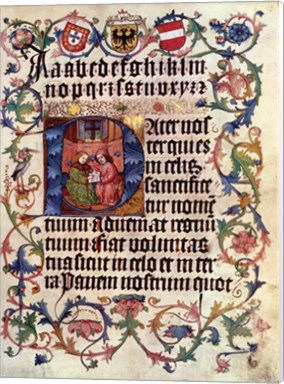 Aaabcdefghiklm
nopqrrsstuvxyzz
Pater nos
ter qui es
in celis
sanctifice
tur nomē
tuum adueniat regnū
tuum fiat voluntas
tua sicut in celo et in ter
ra Panem nostrum quot